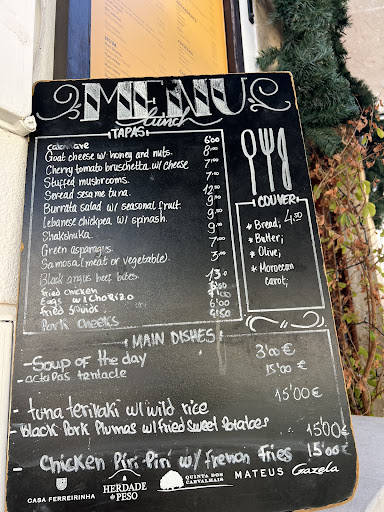 MENU
Lunch
TAPAS
Goat cheese w/ honey and nuts. 8,00
Cherry tomato bruschetta w/ cheese 7,00
Stuffed mushrooms. 7,00
Seread sesame tuna. 12,90
Burrata salad w/ seasonal fruit. 9,90
Lebanese chickpea w/ spinash. 9,90
Shakshuka. 9,00
Green asparagus. 7,00
Samosa (meat or vegetable). 3,00
Black angus beef bites 13,0
fried chicken
Eggs w/ CHORIZO
fried squids 6,00
Pork cheeks 6,50
COUVER 4,50
* Bread;
* Butter;
* Olive;
* Moroccan
carot;
MAIN DISHES
- Soup of the day 3'00 €
- octapas tentacle 15'00 €
- tuna terikaki w/ wild rice 15'00 €
- Black Pork Plumas w/ Fried Sweet Potatoes 15'00 €
- Chicken Piri Piri w/ french fries 15'00 €
CASA FERREIRINHA
HERDADE do PESO
QUINTA DOS CARVALHAIS
MATEUS
Gazela